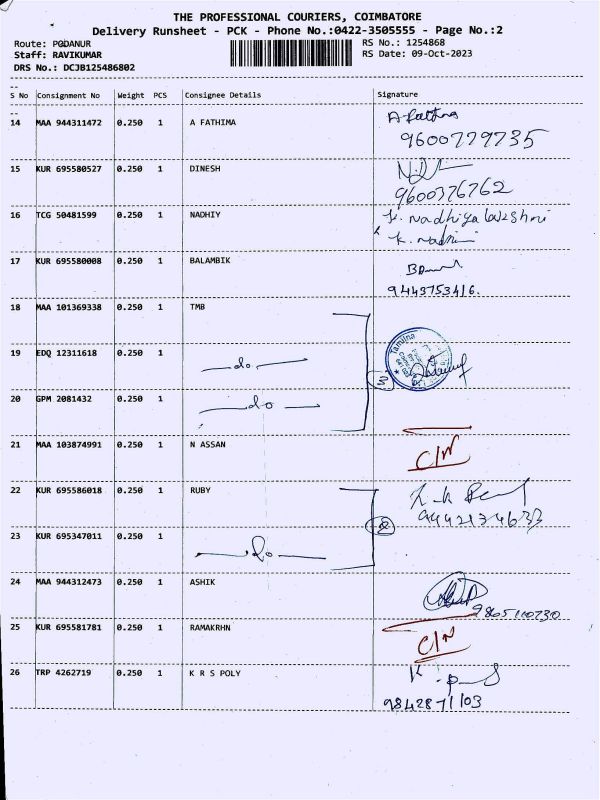 THE PROFESSIONAL COURIERS, COIMBATORE
Delivery Runsheet - PCK - Phone No.:0422-3505555 - Page No.:2
Route: PODANUR RS No.: 1254868
Staff: RAVIKUMAR RS Date: 09-Oct-2023
DRS No.: DCJB125486802
--
S No Consignment No Weight PCS Consignee Details Signature
--
14 MAA 944311472 0.250 1 A FATHIMA A-fathma
9600779735
15 KUR 695580527 0.250 1 DINESH
9600376762
16 TCG 50481599 0.250 1 NADHIY K. Nadhiya lakshmi
K. Nadhi
17 KUR 695580008 0.250 1 BALAMBIK
9443753416.
18 MAA 101369338 0.250 1 TMB
19 EDQ 12311618 0.250 1 do Tamilna
3
20 GPM 2081432 0.250 1 do
21 MAA 103874991 0.250 1 N ASSAN C/N
22 KUR 695586018 0.250 1 RUBY
9442134633
2
23 KUR 695347011 0.250 1 do
24 MAA 944312473 0.250 1 ASHIK
9865110730
25 KUR 695581781 0.250 1 RAMAKRHN C/N
26 TRP 4262719 0.250 1 K R S POLY
9842871103